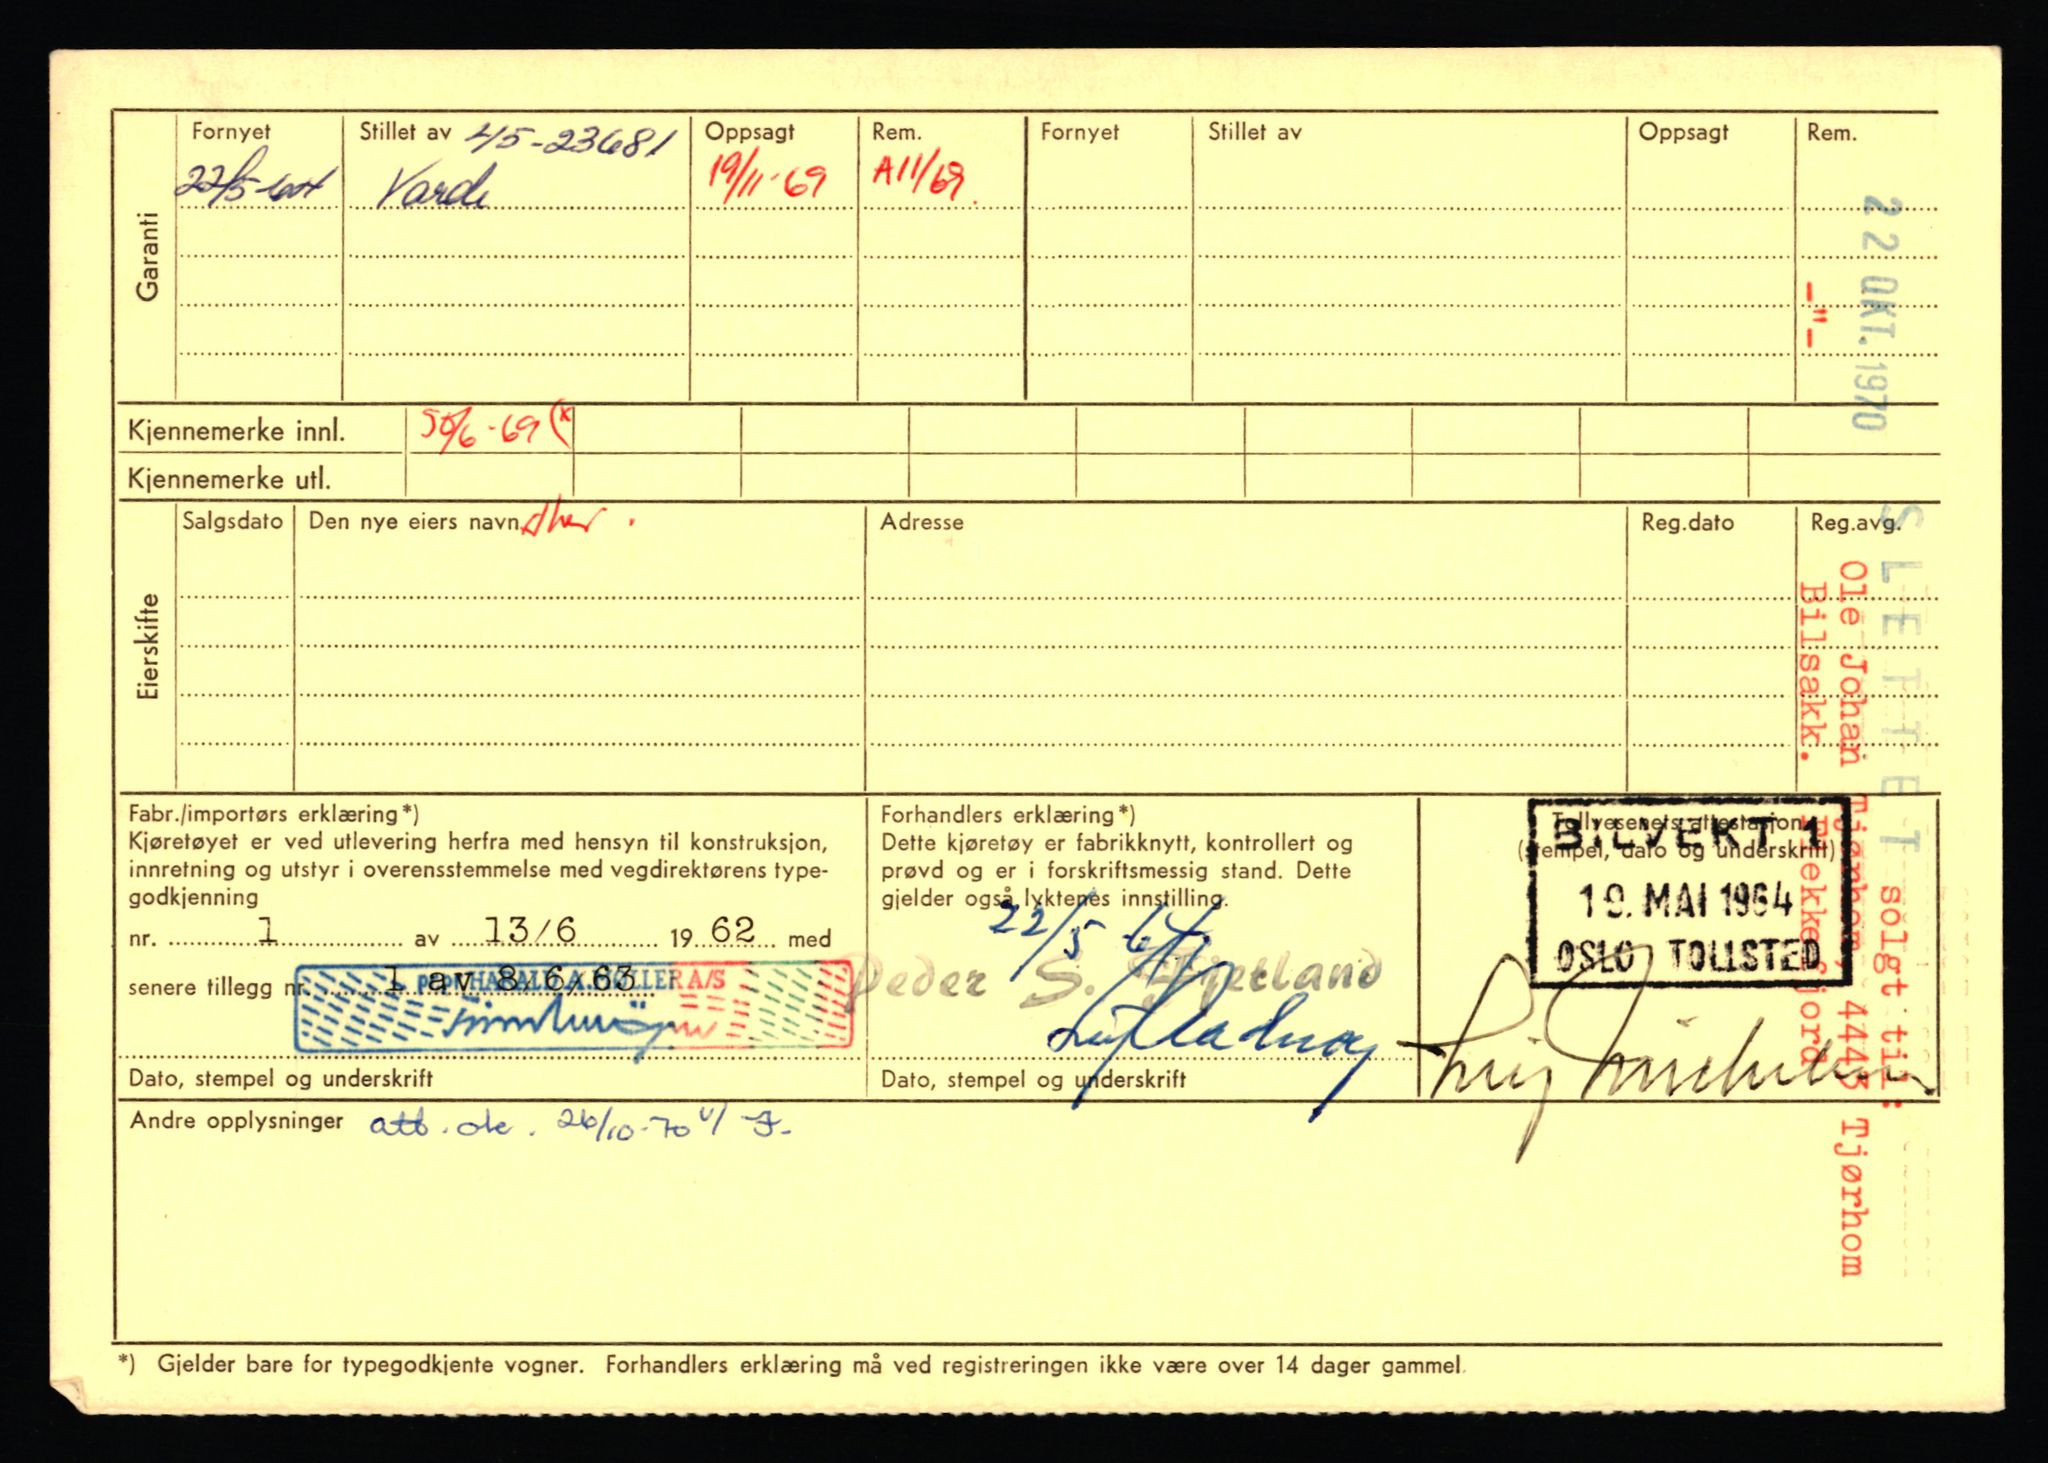 Garanti
Fornyet Stillet av 45-23681 Oppsagt Rem. Fornyet Stillet av Oppsagt Rem.
22/5-64 Varde 19/11-69 A11/69
Kjennemerke innl. 30/6-69 (x
Kjennemerke utl.
Eierskifte
Salgsdato Den nye eiers navn Adresse Reg.dato Reg.avg.
22 OKT. 1970
SLETTET solgt til:
Ole Johan Tjørhom, 4443 Tjørhom
-"- Bilsakk. Flekkefjord
Fabr./importørs erklæring*)
Kjøretøyet er ved utlevering herfra med hensyn til konstruksjon,
innretning og utstyr i overensstemmelse med vegdirektørens type-
godkjenning
nr. 1 av 13/6 19 62 med
senere tillegg nr. 1 av 8/6/63
MØLLER A/S
Dato, stempel og underskrift
Forhandlers erklæring*)
Dette kjøretøy er fabrikknytt, kontrollert og
prøvd og er i forskriftsmessig stand. Dette
gjelder også lyktenes innstilling.
22/5 64
Peder S. Fjetland
Dato, stempel og underskrift
Tollvesenets attestasjon
(stempel, dato og underskrift)
BILVERT 1
19. MAI 1964
OSLO TOLLSTED
Andre opplysninger att. ok. 26/10-70
*) Gjelder bare for typegodkjente vogner. Forhandlers erklæring må ved registreringen ikke være over 14 dager gammel.